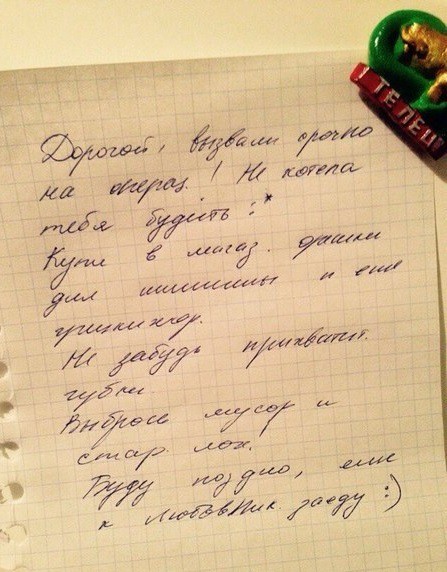 ТЕЛЕЦ
Дорогой, вызвали срочно
на операц.! Не хотела
тебя будить :*
Купи в магаз.
для и еще
Не забудь прихватит.
губки
Выброси мусор и
стар. лох.
Буду поздно, еще
к любовник. заеду :)